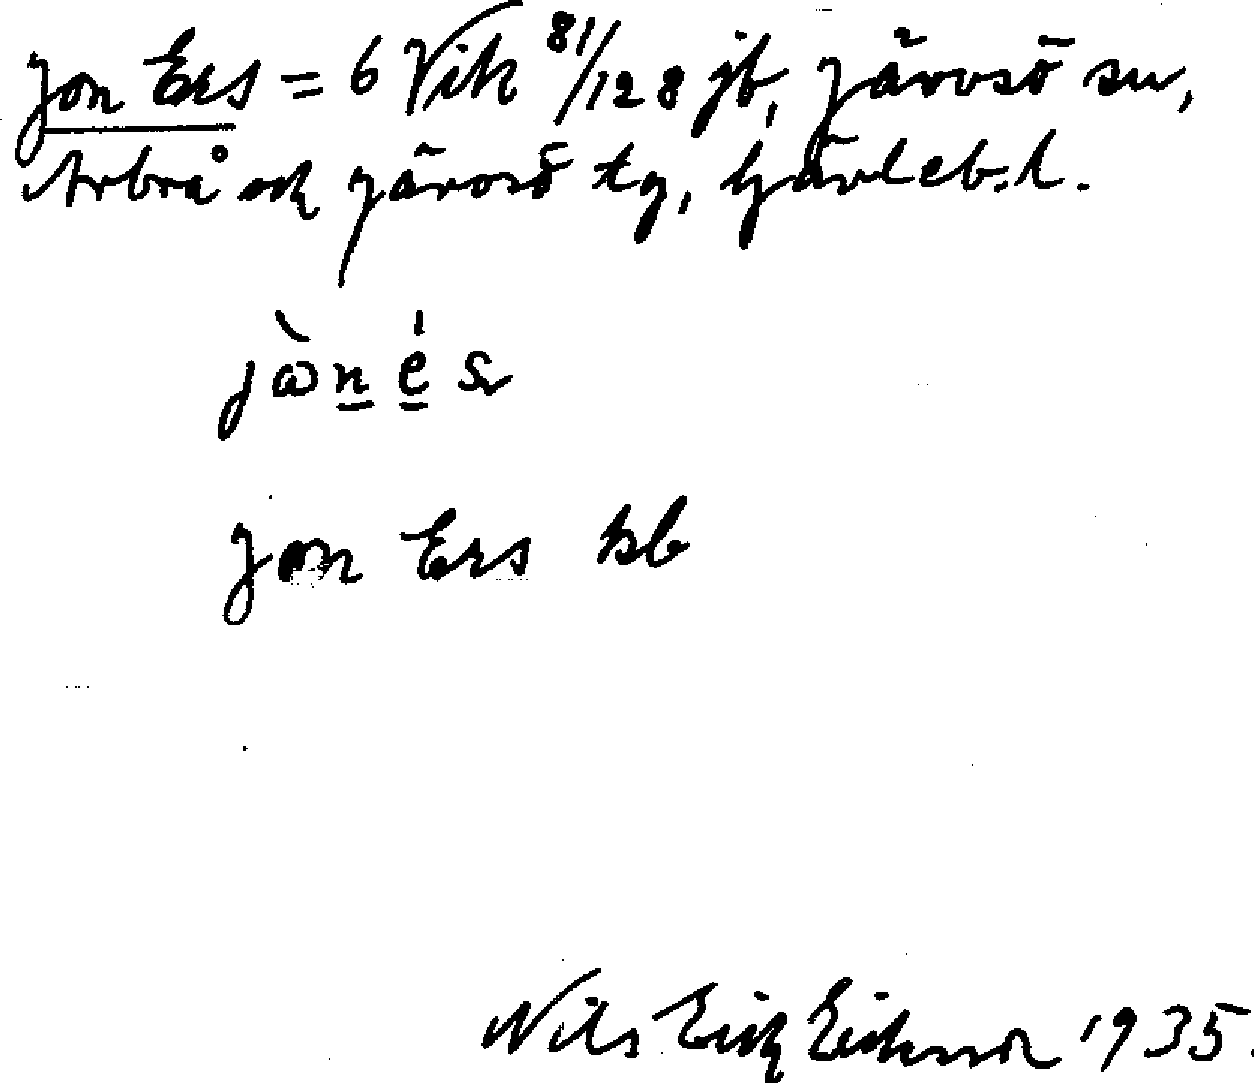 Jon Ers = 6 Vik 81/128 jb, Järvsö sn,
Arbrå och Järvsö tg, Gävleb. l.
jὼn̲ é̲s
Jon Ers kb
Nils Erik Eriksson 1935.